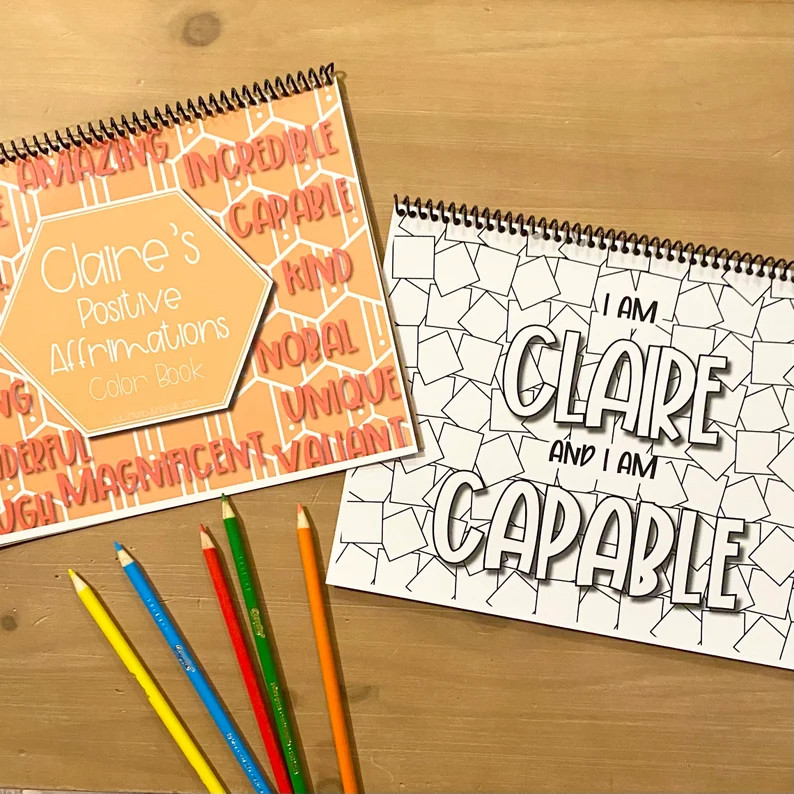 AMAZING
INCREDIBLE
CAPABLE
KIND
NOBAL
UNIQUE
VALIANT
MAGNIFICENT
Claire's
Positive
Affrimations
Color Book
I AM
CLAIRE
AND I AM
CAPABLE